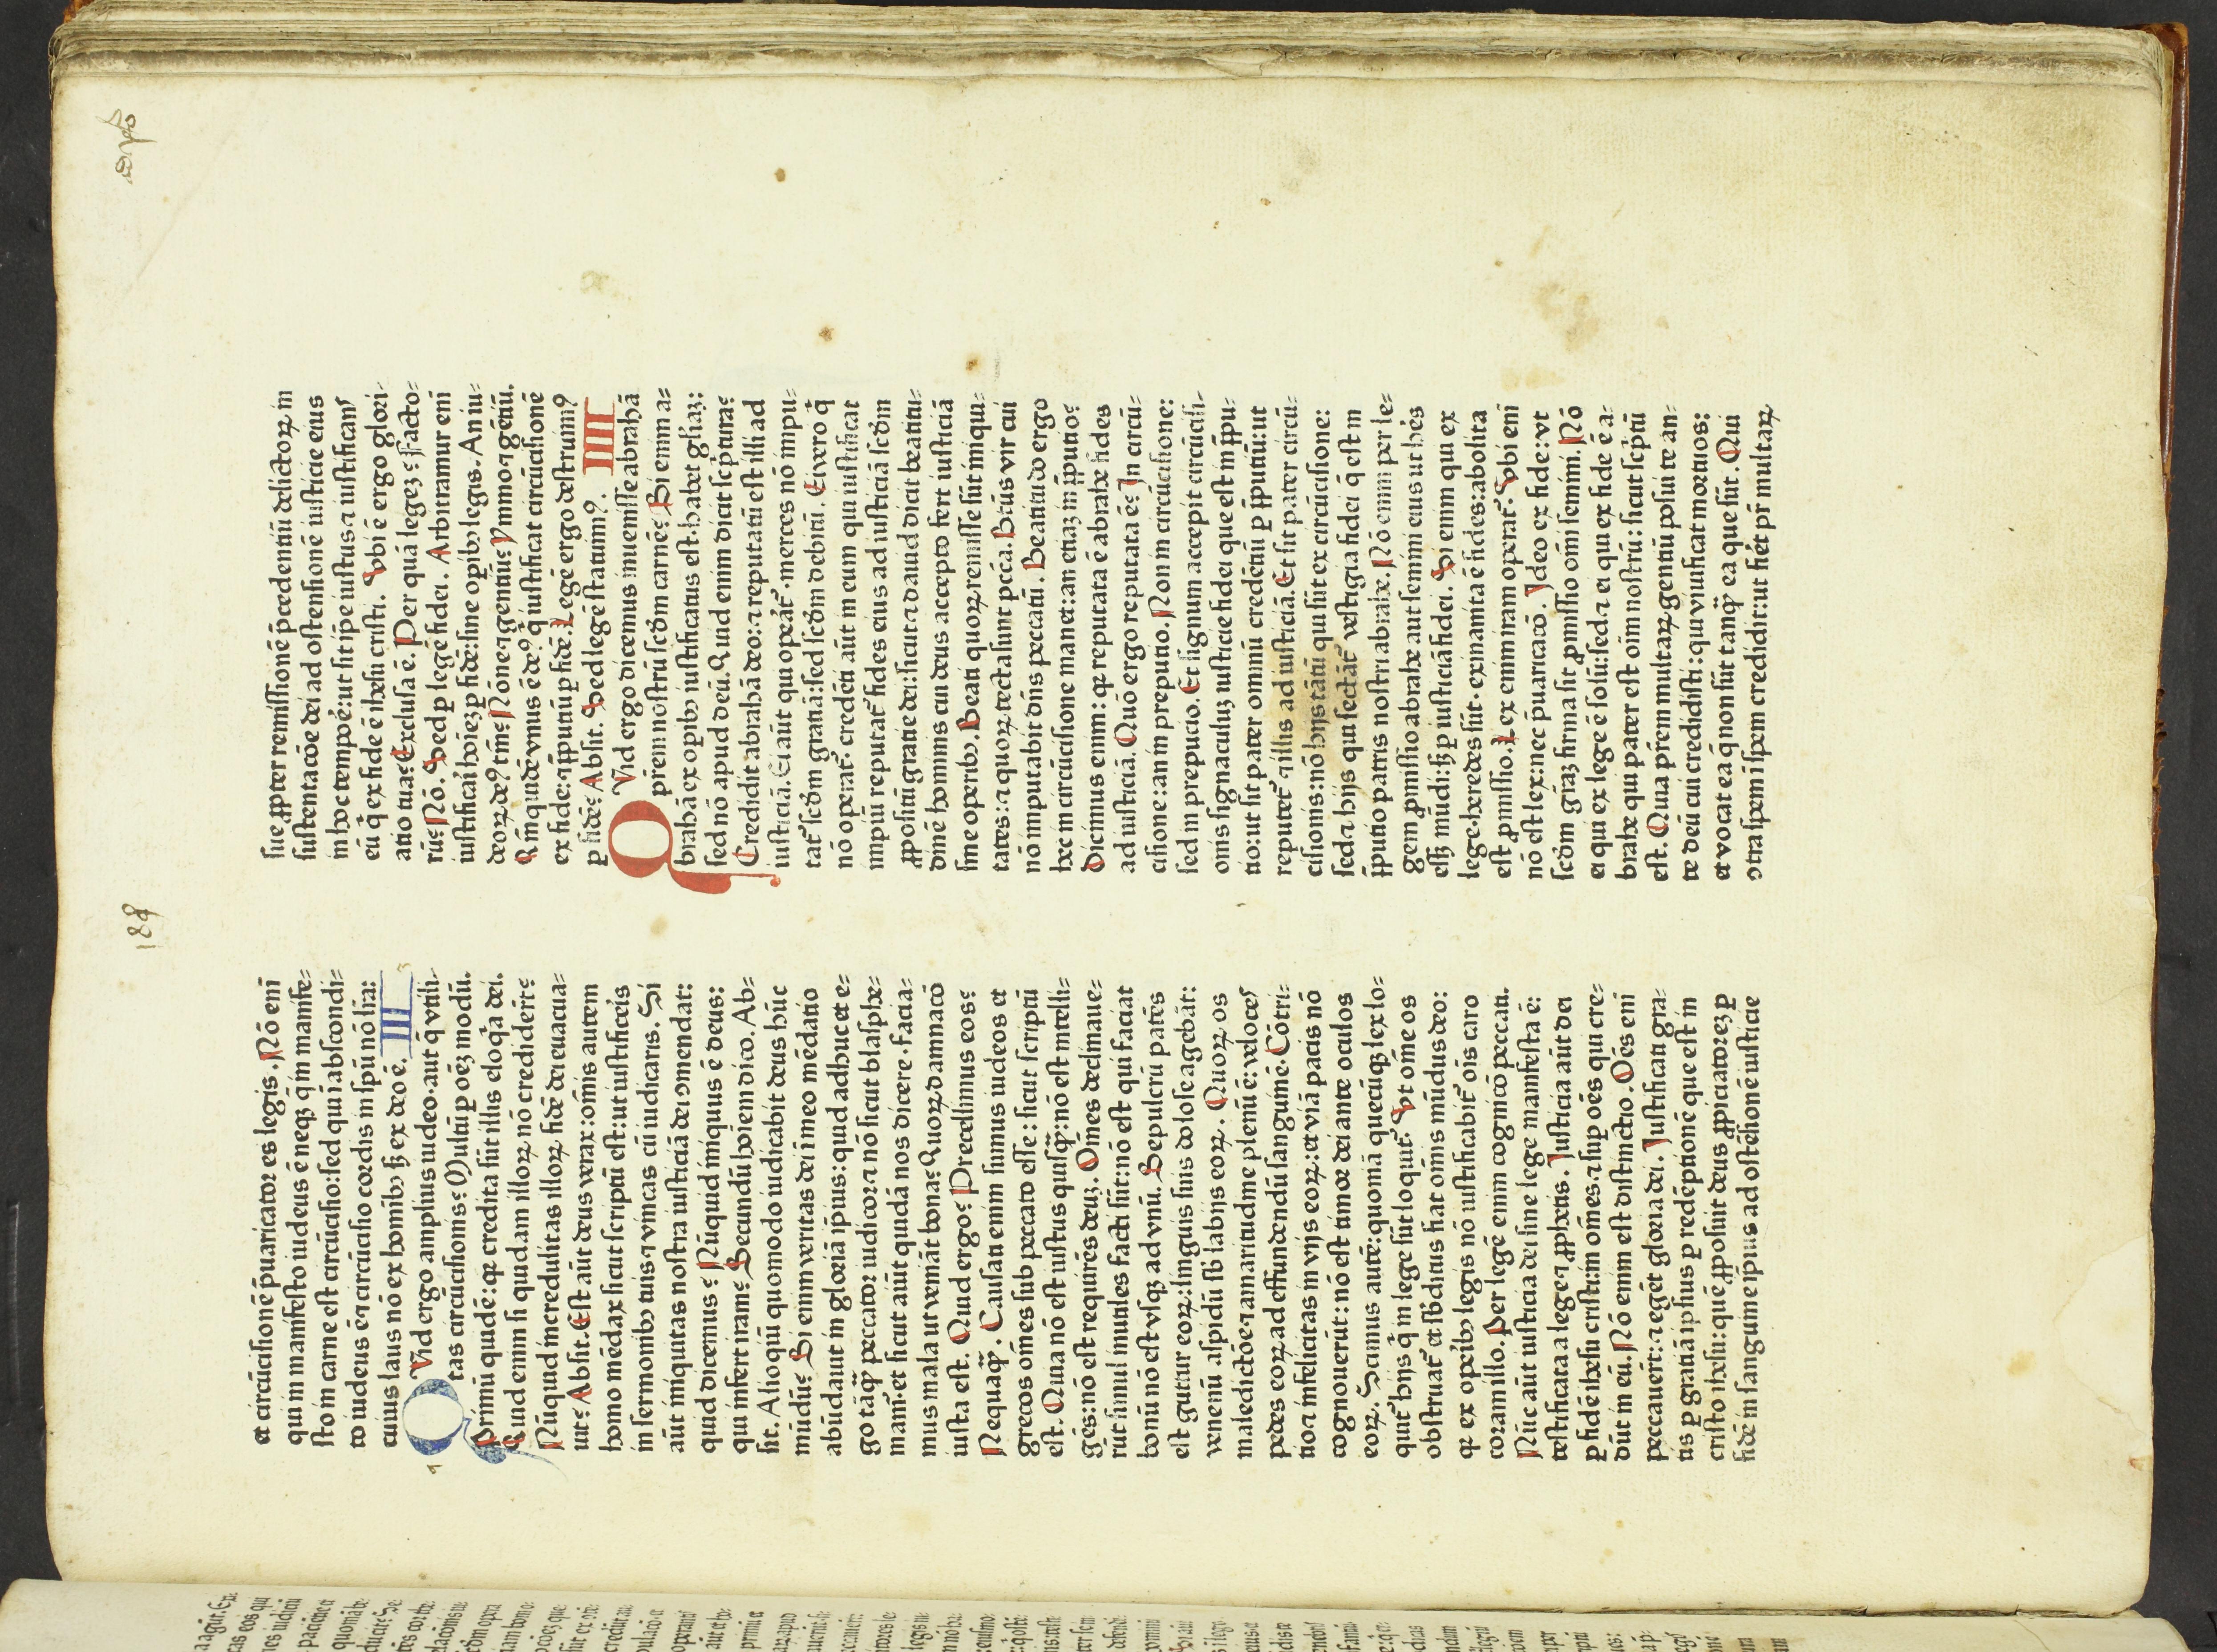 188
et circūcisionē p̄uaricator es legis. Nō enī
qui in manifesto iudeus ē neqꝫ q̄ in manife⸗
sto in carne est circūcisio: sed qui ī abscondi⸗
to iudeus ē ⁊ circūcisio cordis in spū nō lr̄a:
cuius laus nō ex homībꝫ sꝫ ex deo ē. III
QVid ergo amplius iudeo. aut q̄ vtili⸗
tas circūcisionis? Multū ꝑ oēꝫ modū.
Primū quidē: qꝛ credita sūt illis eloq̄a dei.
Quid enim si quidam illoꝝ nō credidert̄?
Nūquid incredulitas illoꝝ fidē dei euacua⸗
uit? Absit. Est aūt deus verax: om̄is autem
homo mēdax sicut scriptū est: ut iustificeis
in sermonibꝫ tuis ⁊ vincas cū iudicaris. Si
aūt iniquitas nostra iusticiā dei ꝯmendat:
quid dicemus? Nūquid iniquus ē deus:
qui infert iram? Secundū hoīem dico. Ab⸗
sit. Alioqiū quomodo iudicabit deus hūc
mūdū? Si enim veritas dei ī meo mēdatio
abūdauit in gloriā ipius: quid adhuc et e⸗
go tāqꝫ peccator iudicor ⁊ nō sicut blasphe⸗
mam̄. et sicut aiūt quidā nos dicere. facia⸗
mus mala ut veniāt bona? Quoꝝ damnacō
iusta est. Quid ergo? Precellimus eos?
Nequaqꝫ. Causati enim sumus iudeos et
grecos om̄es sub peccato esse: sicut scriptū
est. Quia nō est iustus quisqꝫ: nō est intelli⸗
gēs: nō est requirēs deuꝫ. Om̄es declinaue⸗
rūt simul inutiles facti sūt: nō est qui faciat
bonū nō est vsqꝫ ad vnū. Sepulcrū patēs
est guttur eoꝝ: linguis suis dolose agebāt:
venenū aspidū sb̄ labijs eoꝝ. Quoꝝ os
maledictōe ⁊ amaritudine plenū ē: veloces
pedes eoꝝ ad effundendū sanguinē. Cōtri⸗
tio ⁊ infelicitas in vijs eoꝝ: et viā pacis nō
cognouerūt: nō est timor dei ante oculos
eoꝝ. Scimus autē: quoniā quecūqꝫ lex lo⸗
quit̄ hijs q̄ in lege sūt loquit̄. Vt om̄e os
obstruat̄ et sb̄ditus fiat om̄is mūdus deo:
qꝛ ex opēibꝫ legis nō iustificabit̄ oīs caro
coram illo. Per legē enim cognicō peccati.
Nūc aūt iusticia dei sine lege manifesta ē:
testificata a lege ⁊ ꝓphetis. Iusticia aūt dei
ꝑ fidē ihesu cristi: in om̄es ⁊ suꝑ oēs qui cre⸗
dūt in eū. Nō enim est distinctio. Oēs enī
peccauert̄: ⁊ egēt gloria dei. Iustificati gra⸗
tis ꝑ gratiā ipsius ꝑ redēptionē que est in
cristo ihesu: quē ꝓposuit deus ꝓpiciatoreꝫ ꝑ
fidē in sanguine ipius ad ostēsionē iusticie
sue ꝓpter remissionē p̄cedentiū delictoꝝ in
sustentacōe dei ad ostensionē iusticie eius
in hoc tempōe: ut sit ip̄e iustus ⁊ iustificans
eū q̄ ex fide ē ihesu cristi. Vbi ē ergo glori⸗
atio tua? Exclusa ē. Per quā legeꝫ? facto⸗
rū? Nō. Sed ꝑ legē fidei. Arbitramur enī
iustificari hoīeꝫ ꝑ fidē: sine oꝑibꝫ legis. An iu⸗
deoꝝ de9 tm̄? Nōne ⁊ gentiū? Ymmo ⁊ gētiū.
Qm̄ quidē vnus ē de9 q̄ iustificat circūcisionē
ex fide: ⁊ p̄putiū ꝑ fidē. Legē ergo destruim9
ꝑ fidē? Absit. Sed legē statuim9. IIII
QVid ergo dicemus inuenisse abrahā
priēm nostrū scd̄m carnē? Si enim a⸗
brahā ex opibꝫ iustificatus est. habet gl̄iaꝫ:
sed nō apud deū. Quid enim dicit sc̄ptura?
Credidit abrahā deo: ⁊ reputatū est illi ad
iusticiā. Ei aūt qui opeāt̄. merces nō impu⸗
tat̄ scd̄m gratiā: sed scd̄m debitū. Ei vero q̄
nō operat̄. credēti aūt in eum qui iustificat
impiū reputat̄ fides eius ad iusticiā scd̄m
ꝓpositū gratie dei: sicut ⁊ dauid dicit beatitu⸗
dinē hominis cui deus accepto fert iusticiā
sine operibꝫ. Beati quoꝝ remisse sūt iniqui⸗
tates: ⁊ quoꝝ tecta sunt pcc̄a. Btūs vir cui
nō imputabit dn̄s peccatū. Beatitudo ergo
hec in circūcisione manet: an etiaꝫ in p̄putio?
Dicimus enim: qꝛ reputata ē abrahe fides
ad iusticiā. Quō ergo reputata ē? In circū⸗
cisione: an in preputio. Non in circūcisione:
sed in prepucio. Et signum accepit circūcisi⸗
onis signaculuꝫ iusticie fidei que est in p̄pu⸗
tio: ut sit pater omniū credētiū ꝑ p̄putiū: ut
reputet̄ ⁊ illis ad iusticiā. Et sit pater circū⸗
cisionis: nō hijs tātū qui sūt ex circūcisione:
sed ⁊ hijs qui sectāt̄ vestigia fidei q̄ est in
p̄putio patris nostri abrahe. Nō enim per le⸗
gem ꝓmissio abrahe aut semini eius ut hēs
esset mūdi: sꝫ ꝑ iusticiā fidei. Si enim qui ex
lege. heredes sūt. exinanita ē fides: abolita
est ꝓmissio. Lex enim iram operat̄. Vbi enī
nō est lex: nec p̄uaricacō. Ideo ex fide: vt
scd̄m gr̄aꝫ firma sit ꝓmissio om̄i semini. Nō
ei qui ex lege ē solū: sed ⁊ ei qui ex fide ē a⸗
brahe qui pater est oīm nostrū: sicut sc̄ptū
est. Quia pr̄em multaꝝ gentiū posui te an⸗
te deū cui credidisti: qui viuificat mortuos:
et vocat ea q̄ non sūt tanqꝫ ea que sūt. Qui
ꝯtra spem ī spem credidit: ut fiēt pr̄ multaꝝ